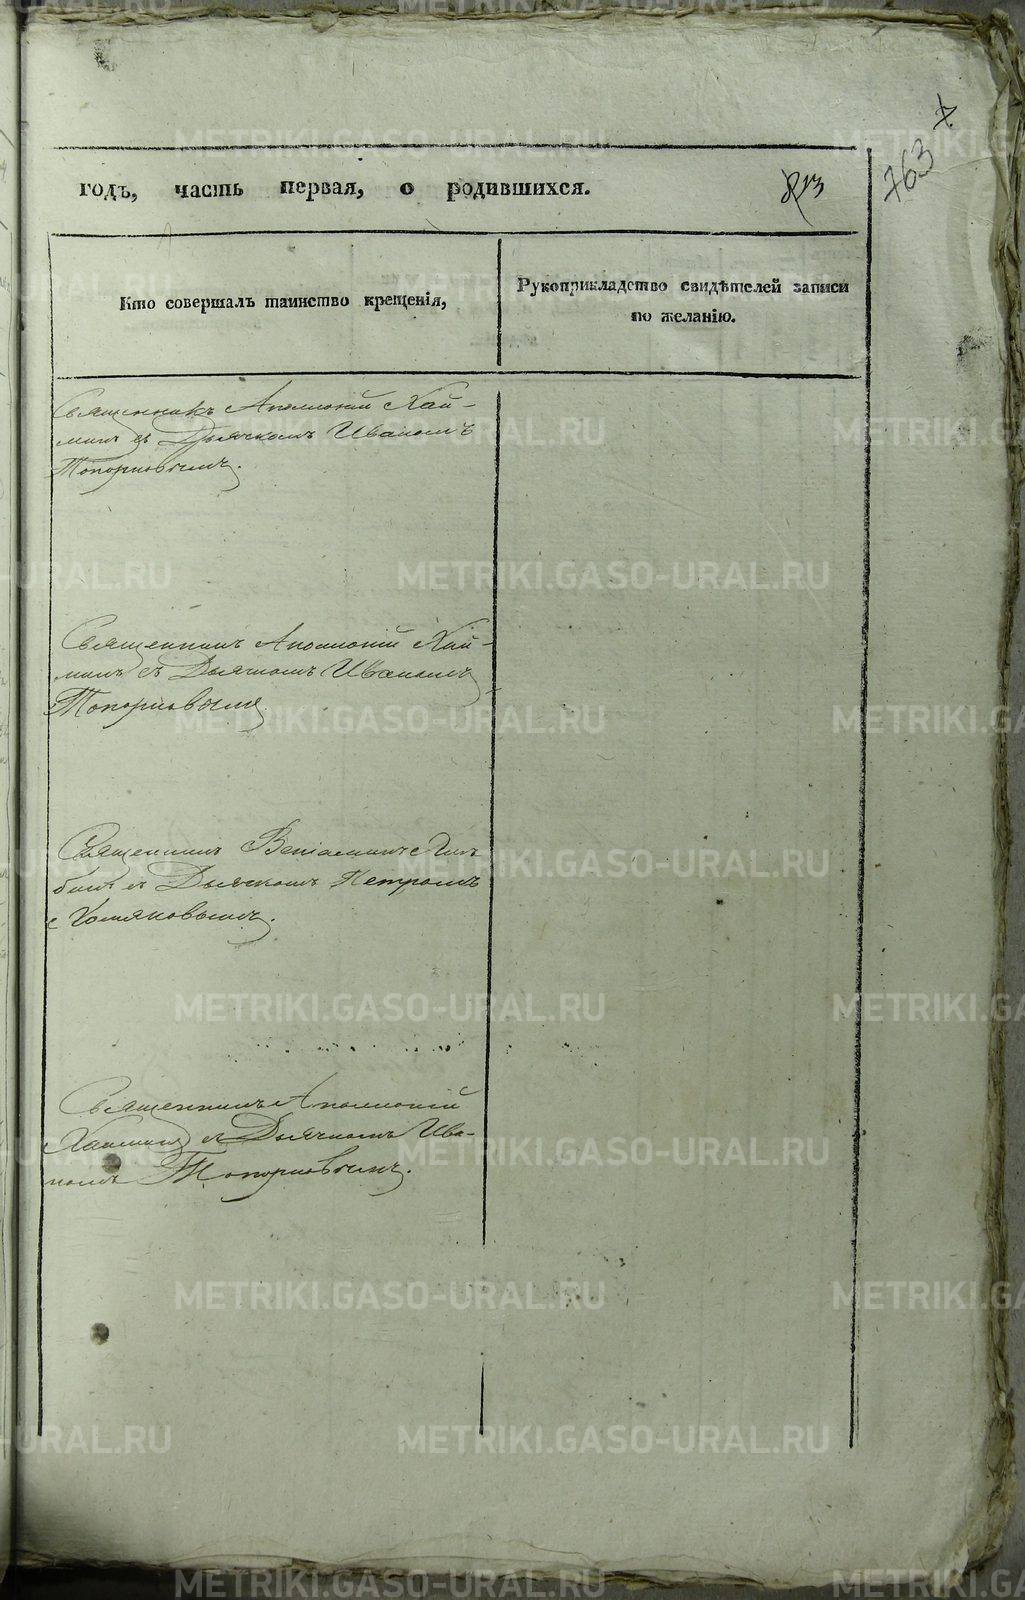 763
годъ, часть первая, о родившихся.
813
Кто совершалъ таинство крещенія,
Рукоприкладство свидѣтелей записи
по желанію.
Священникъ Аполлоній Хай-
минъ съ Дьячкомъ Иваномъ
Топорковымъ.
Священникъ Аполлоній Хай-
минъ съ Дьячкомъ Иваномъ
Топорковымъ
Священникъ Веніаминъ
съ Дьячкомъ Петромъ
Хомяковымъ.
Священникъ Аполлоній
Хайминъ съ Дьячкомъ Ива-
номъ Топорковымъ.
METRIKI.GASO-URAL.RU